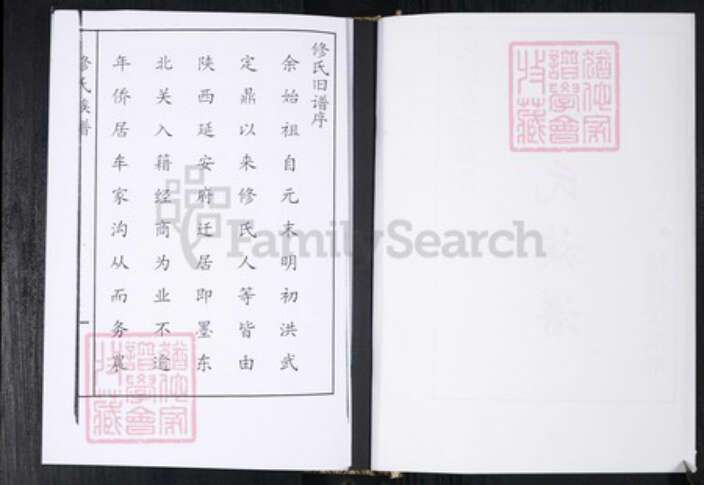 修氏旧谱序
余始祖自元末明初洪武
定鼎以来修氏人等皆由
陕西延安府迁居即墨东
北关入籍经商为业不逾
年侨居车家沟从而务农
修氏族谱
FamilySearch